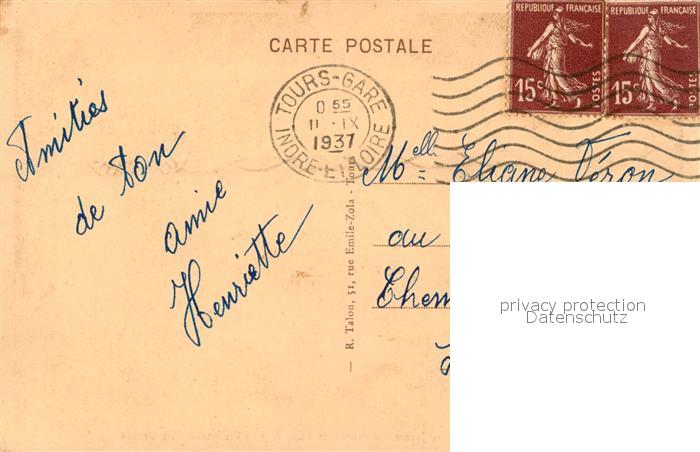 CARTE POSTALE
REPUBLIQUE FRANÇAISE
15c
POSTES
REPUBLIQUE FRANÇAISE
15c
POSTES
TOURS-GARE
0 55
11 · IX
1937
INDRE-ET-LOIRE
Amitiés
de ton
amie
Henriette
— R. Talon, 51, rue Emile-Zola - Tours
Melle Éliane Véron
au
Chem
privacy protection
Datenschutz